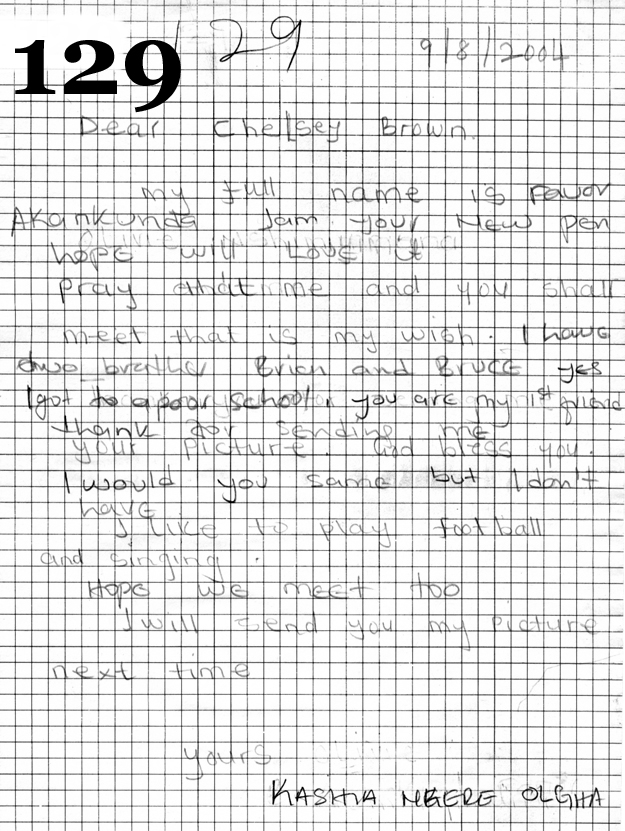 129
29 9/8/2004
Dear Chelsey Brown.
my full name is Favor
Akankunda Iam your New pen
hope will Love it
pray that me and you shall
meet that is my wish. I have
two brother Brian and Bruce yes
I got to a poor school. you are my 1st friend
thank for sending me
your picture. God bless you.
I would you same but I don't
have
I like to play football
and singing.
Hope we meet too
I will send you my picture
next time
yours
KASHIA NGERE OLGHA